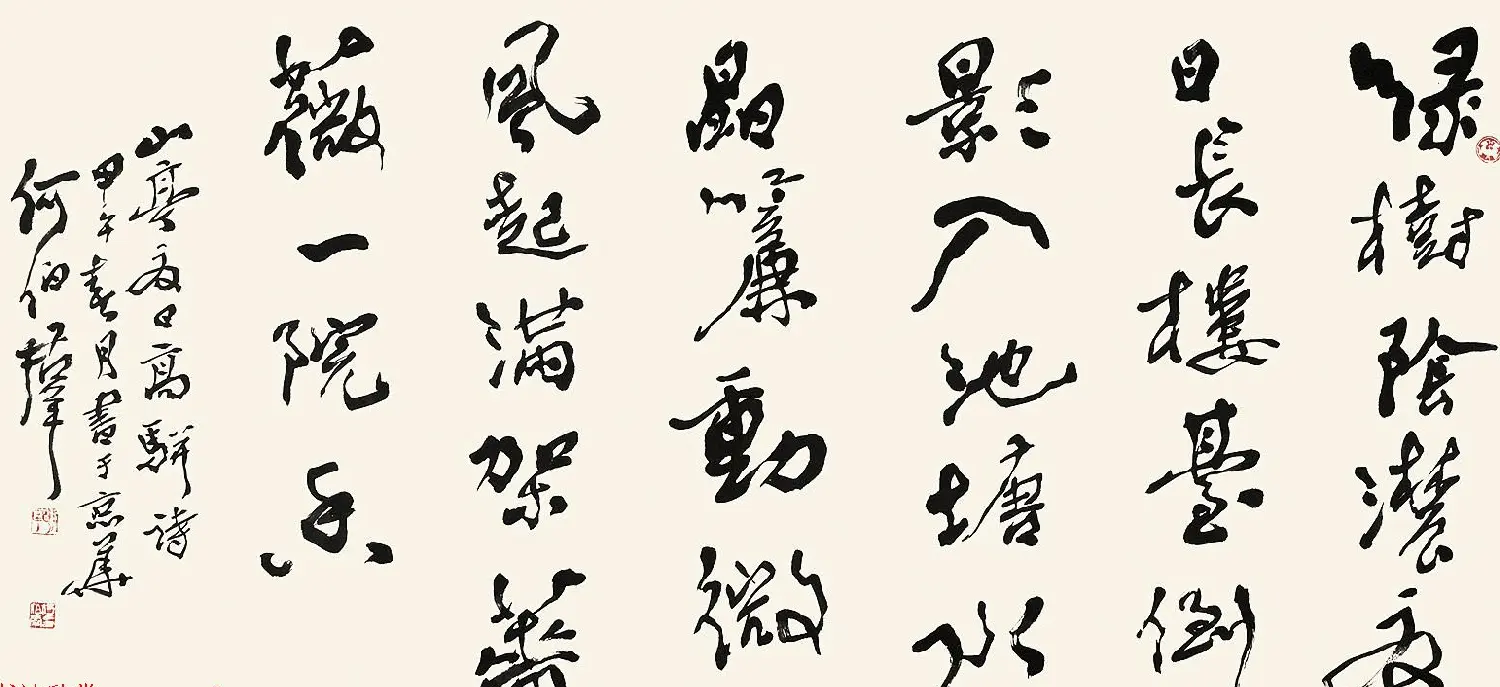 綠樹陰濃夏
日長樓臺倒
影入池塘水
晶簾動微
風起滿架薔
薇一院香
山亭夏日高駢詩
甲午春月書于京華
何伯群